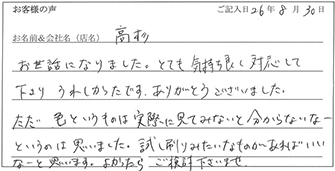 お客様の声
ご記入日 26年 8月 30日
お名前&会社名（店名） 高杉
お世話になりました。とても気持ち良く対応して
下さり うれしかったです。ありがとうございました。
ただ 色というものは実際に見てみないと分からないなー
というのは思いました。試し刷りみたいなものがあればいい
なーと思います。よかったら ご検討下さいませ。